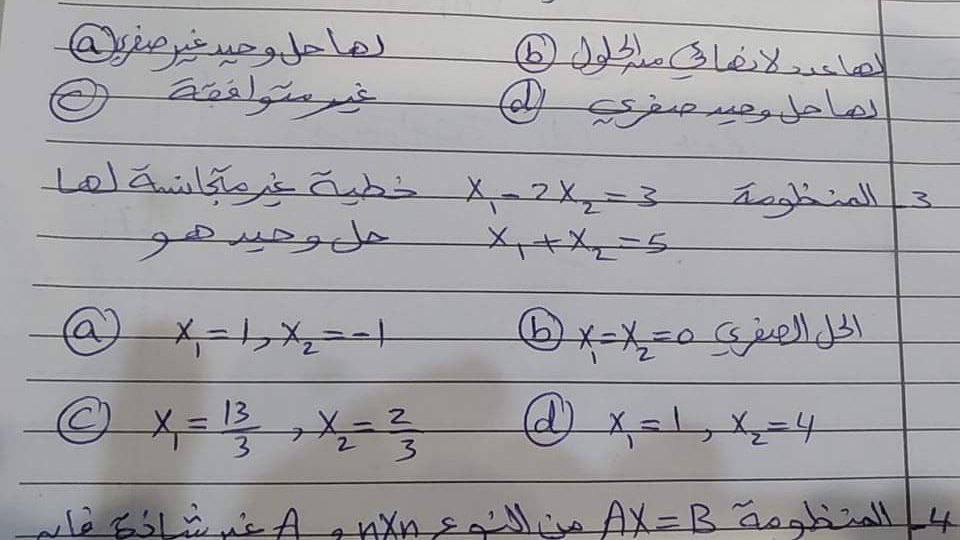 ⓐ لها حل وحيد غير صفري ⓑ لها عدد لا نهائي من الحلول
ⓒ غير متوافقة ⓓ لها حل وحيد صفري
3- المنظومة x₁ - 2x₂ = 3 خطية غير متجانسة لها
x₁ + x₂ = 5 حل وحيد هو
ⓐ x₁ = 1 , x₂ = -1 ⓑ x₁ = x₂ = 0 الحل الصفري
ⓒ x₁ = 13/3 , x₂ = 2/3 ⓓ x₁ = 1 , x₂ = 4
4- المنظومة AX = B من النوع n×n و A غير شاذة فإن